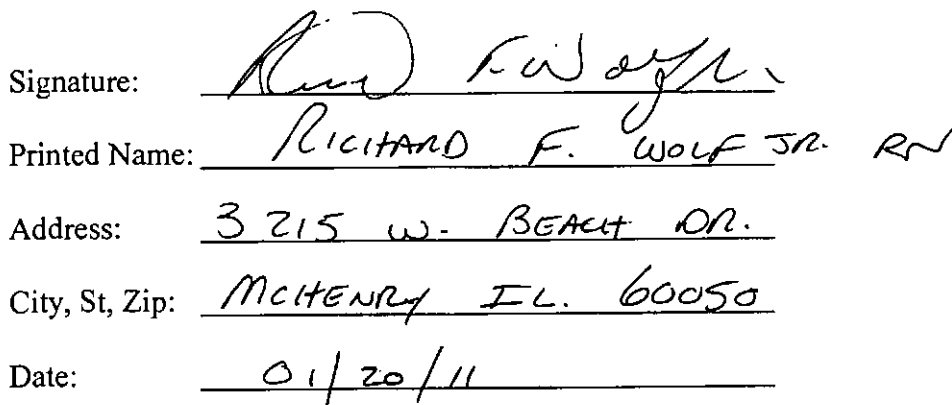 Signature: Richard F. Wolf Jr.
Printed Name: RICHARD F. WOLF JR. RN
Address: 3215 W. BEACH DR.
City, St, Zip: MCHENRY IL. 60050
Date: 01/20/11